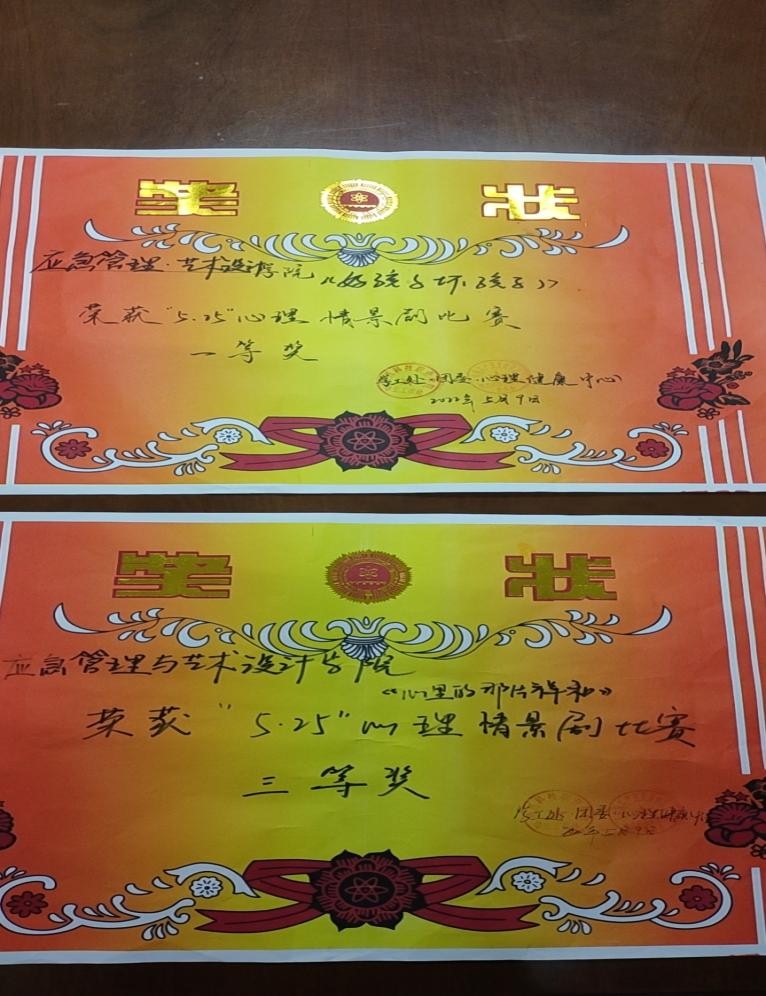 奖 状
应急管理·艺术设计学院《好孩子坏孩子》
荣获"5.25"心理情景剧比赛
一等奖
学工处·团委 心理健康中心
2022年5月9日
奖 状
应急管理与艺术设计学院
《心里的那片祥和》
荣获"5.25"心理情景剧比赛
三等奖
学工处·团委 心理健康中
年5月9日